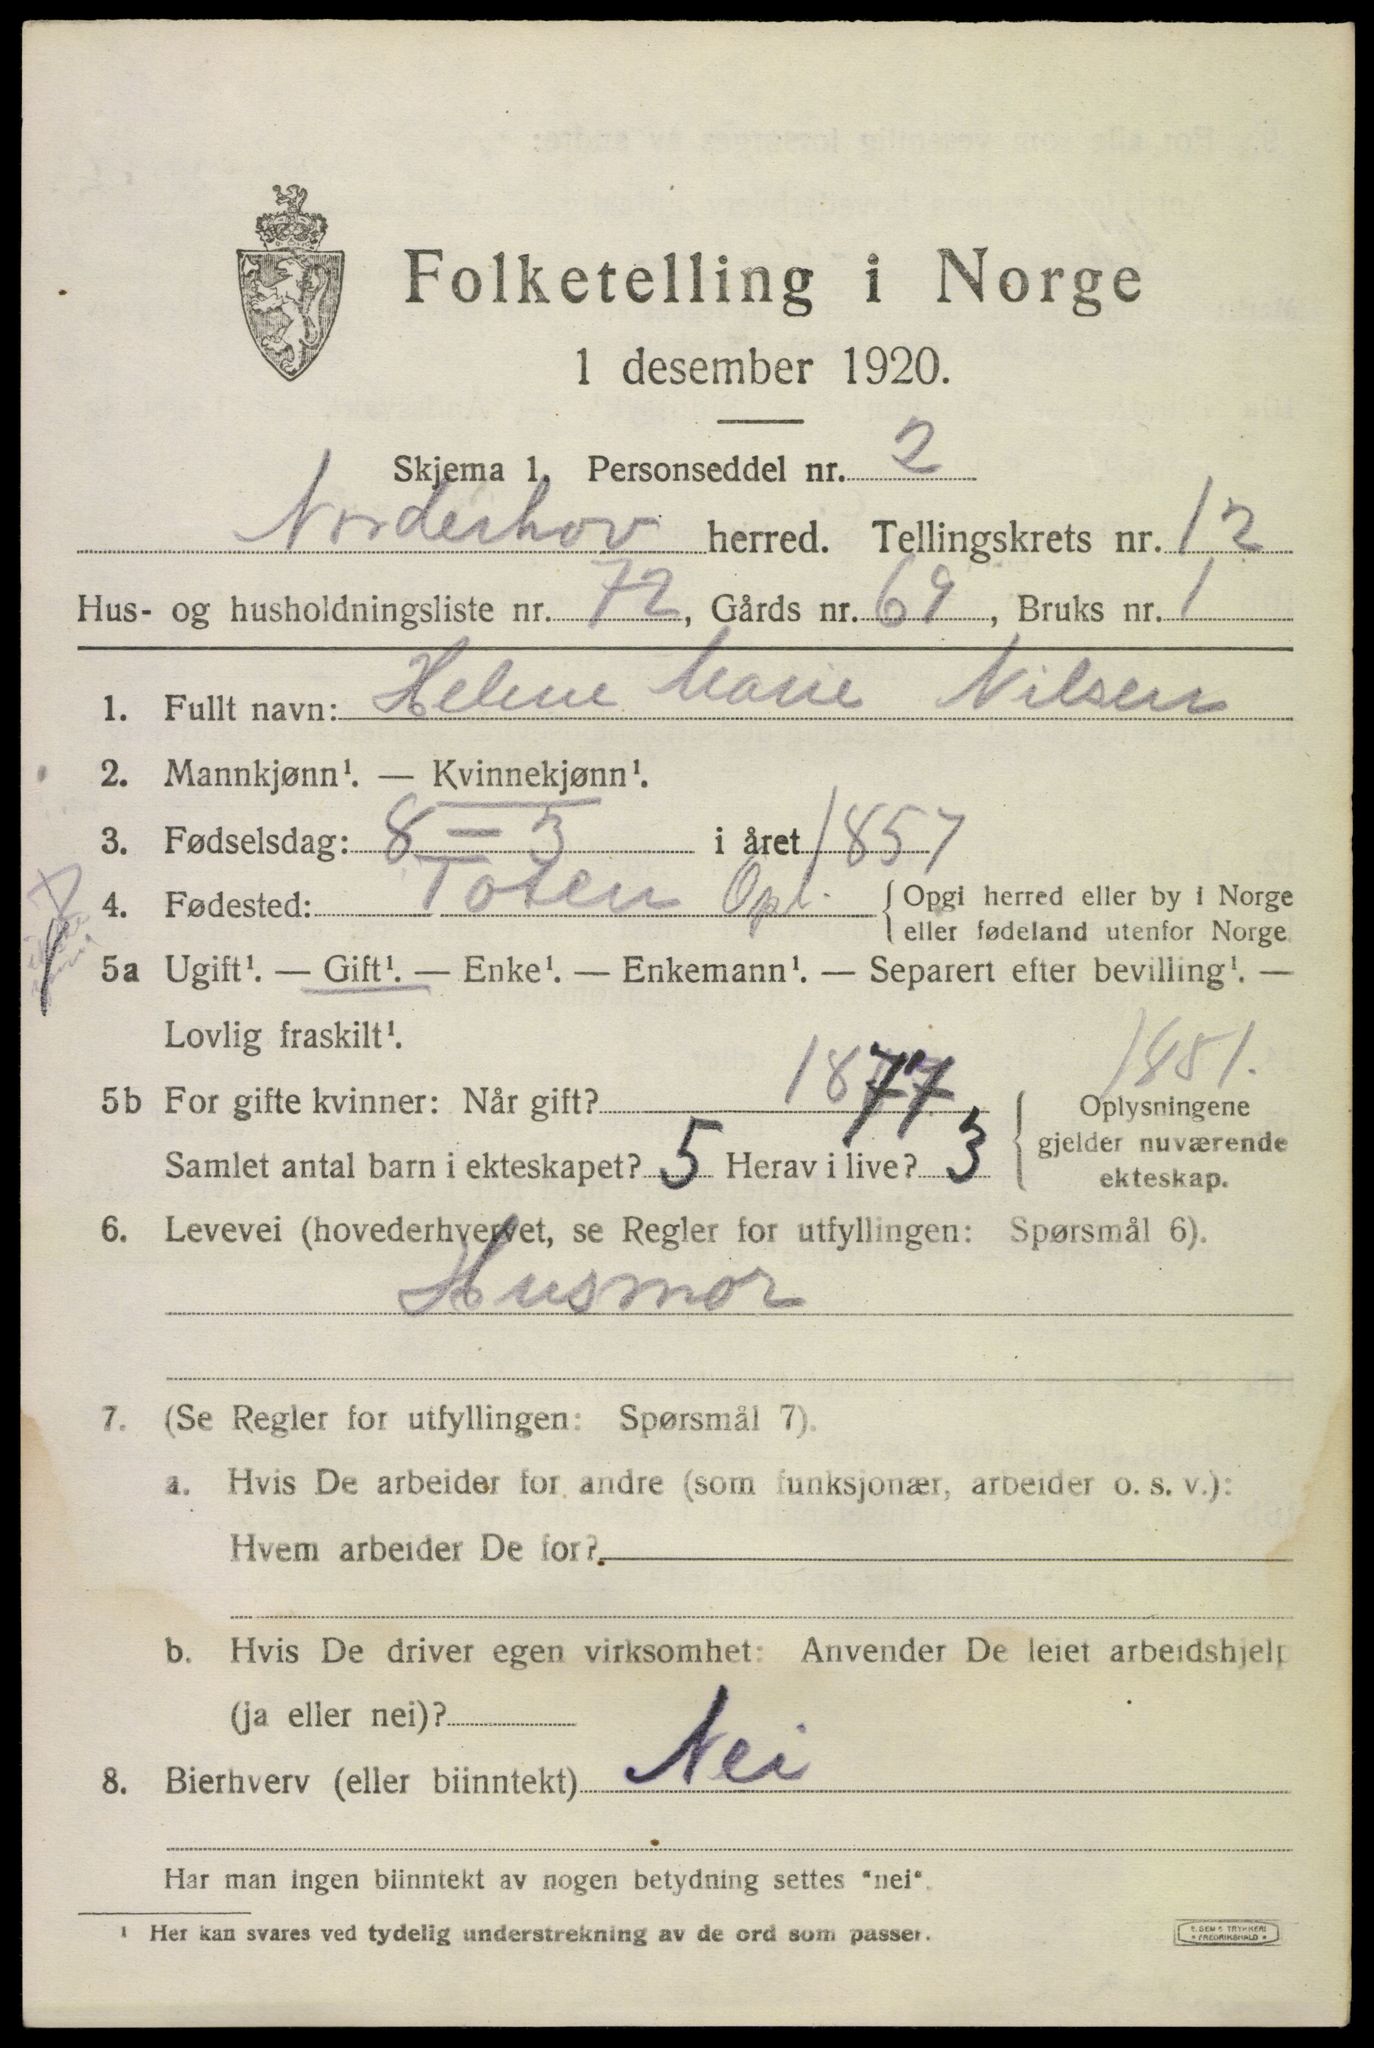 Folketelling i Norge
1 desember 1920.
Skjema 1. Personseddel nr. 2
Norderhov herred. Tellingskrets nr. 12
Hus- og husholdningsliste nr. 72, Gårds nr. 69, Bruks nr. 1
1. Fullt navn: Helene Marie Nilsen
2. Mannkjønn¹. — Kvinnekjønn¹.
3. Fødselsdag: 8 — 3 i året 1857
4. Fødested: Toten Opl. { Opgi herred eller by i Norge
eller fødeland utenfor Norge.
5a Ugift¹. — Gift¹. — Enke¹. — Enkemann¹. — Separert efter bevilling¹. —
Lovlig fraskilt¹.
1881.
5b For gifte kvinner: Når gift? 1877 { Oplysningene
gjelder nuværende
ekteskap.
Samlet antal barn i ekteskapet? 5 Herav i live? 3
6. Levevei (hovederhvervet, se Regler for utfyllingen: Spørsmål 6).
Husmor
7. (Se Regler for utfyllingen: Spørsmål 7).
a. Hvis De arbeider for andre (som funksjonær, arbeider o. s. v.):
Hvem arbeider De for?
b. Hvis De driver egen virksomhet: Anvender De leiet arbeidshjelp
(ja eller nei)?
8. Bierhverv (eller biinntekt) Nei
Har man ingen biinntekt av nogen betydning settes "nei".
¹ Her kan svares ved tydelig understrekning av de ord som passer.
E. SEM'S TRYKKERI
* FREDRIKSHALD *